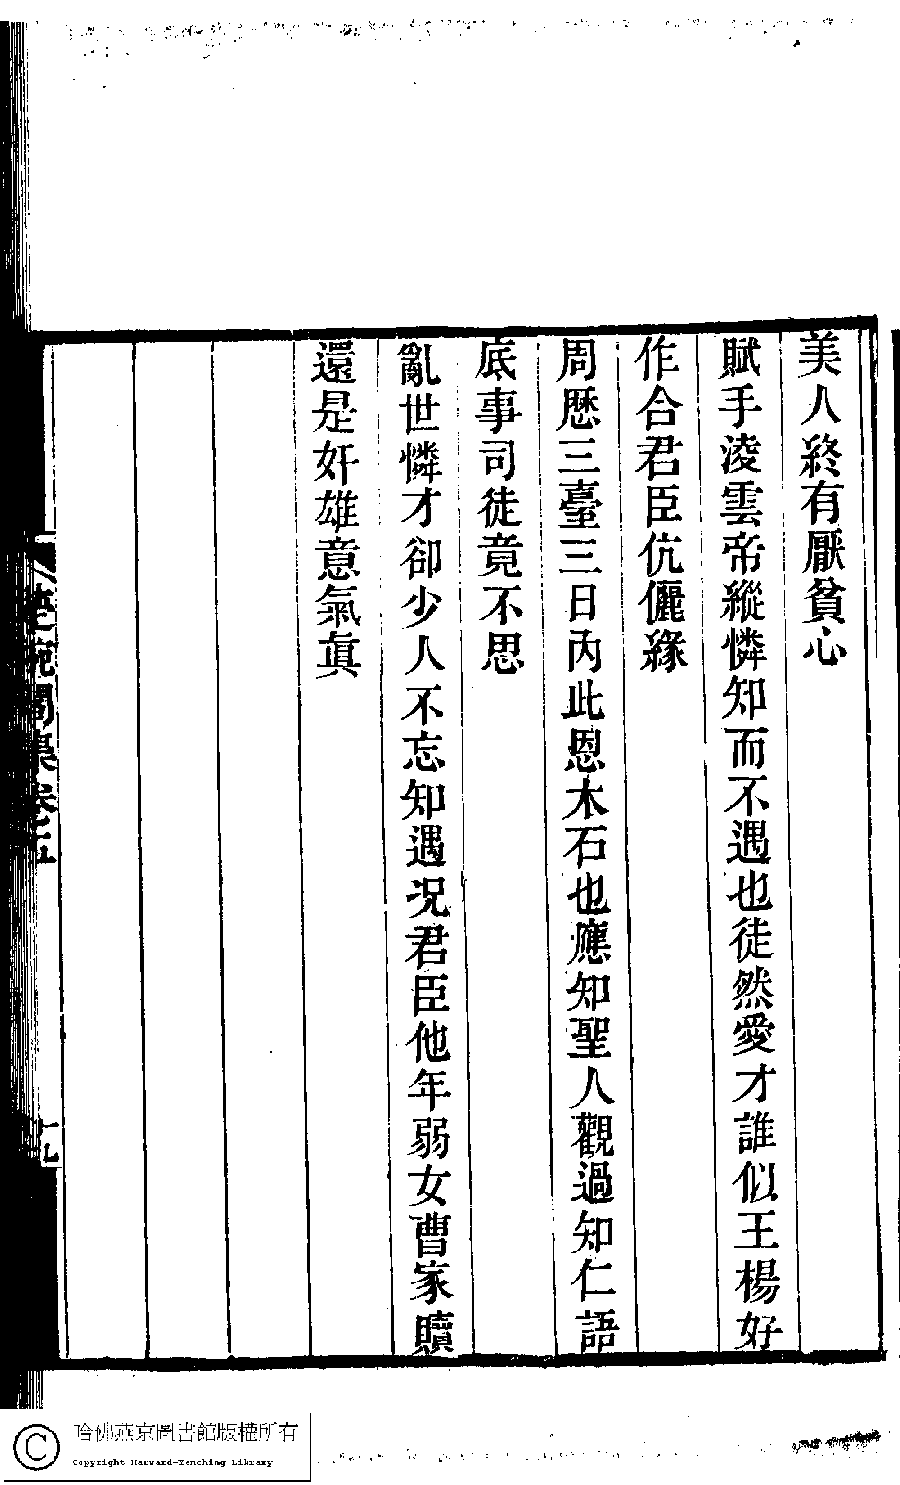 美人終有厭貧心
賦手淩雲帝縱憐知而不遇也徒然愛才誰似王楊好
作合君臣伉儷緣
周歷三臺三日內此恩木石也應知聖人觀過知仁語
底事司徒竟不思
亂世憐才卻少人不忘知遇况君臣他年弱女曹家贖
還是奸雄意氣眞
集卷五
十九
哈佛燕京圖書館版權所有
Copyright Harvard-Yenching Library